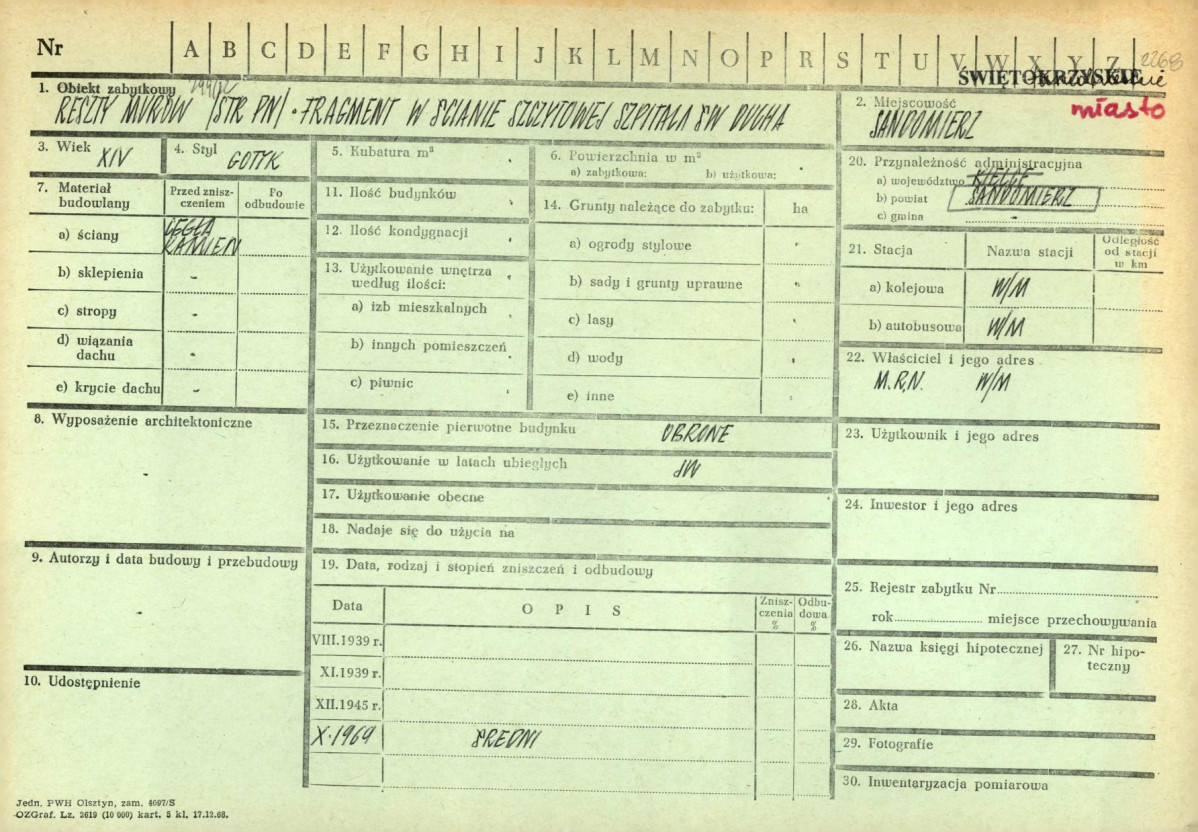 Nr A B C D E F G H I J K L M N O P R S T U V W X Y Z 2268
ŚWIĘTOKRZYSKIE
1. Obiekt zabytkowy
RESZTY MURÓW (STR PN) - FRAGMENT W ŚCIANIE SZCZYTOWEJ SZPITALA ŚW DUCHA
2. Miejscowość
miasto
SANDOMIERZ
3. Wiek XIV
4. Styl GOTYK
5. Kubatura m³
6. Powierzchnia w m²
a) zabytkowa: b) użytkowa:
20. Przynależność administracyjna
a) województwo KIELCE
b) powiat SANDOMIERZ
c) gmina -
7. Materiał budowlany
Przed zniszczeniem
Po odbudowie
a) ściany CEGŁA
KAMIEŃ
b) sklepienia -
c) stropy -
d) wiązania dachu -
e) krycie dachu -
11. Ilość budynków
12. Ilość kondygnacji
13. Użytkowanie wnętrza
według ilości:
a) izb mieszkalnych
b) innych pomieszczeń
c) piwnic
14. Grunty należące do zabytku: ha
a) ogrody stylowe
b) sady i grunty uprawne
c) lasy
d) wody
e) inne
21. Stacja
Nazwa stacji
Odległość
od stacji
w km
a) kolejowa W/M
b) autobusowa W/M
22. Właściciel i jego adres
M.R.N. W/M
8. Wyposażenie architektoniczne
-
15. Przeznaczenie pierwotne budynku OBRONE
16. Użytkowanie w latach ubiegłych JW
17. Użytkowanie obecne
18. Nadaje się do użycia na
23. Użytkownik i jego adres
24. Inwestor i jego adres
9. Autorzy i data budowy i przebudowy
-
19. Data, rodzaj i stopień zniszczeń i odbudowy
Data
OPIS
Zniszczenia %
Odbudowa %
VIII.1939 r.
XI.1939 r.
XII.1945 r.
X.1969 ŚREDNI
25. Rejestr zabytku Nr
rok miejsce przechowywania
26. Nazwa księgi hipotecznej
27. Nr hipoteczny
10. Udostępnienie
28. Akta
29. Fotografie
30. Inwentaryzacja pomiarowa
Jedn. PWH Olsztyn, zam. 4697/S
OZGraf. Lz. 2619 (10 000) kart. 5 kl. 17.12.68.